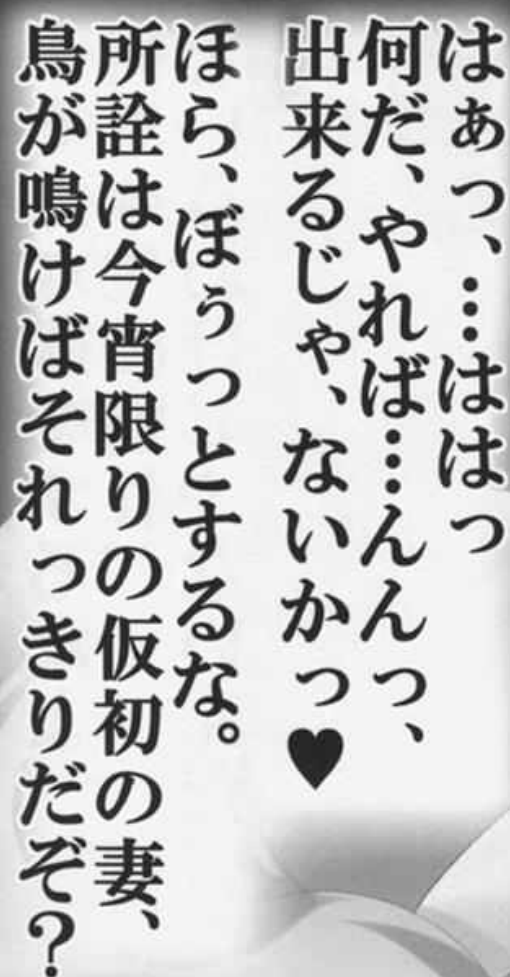 はぁっ、…ははっ
何だ、やれば…んんっ、
出来るじゃ、ないかっ♥
ほら、ぼぅっとするな。
所詮は今宵限りの仮初の妻、
鳥が鳴けばそれっきりだぞ？